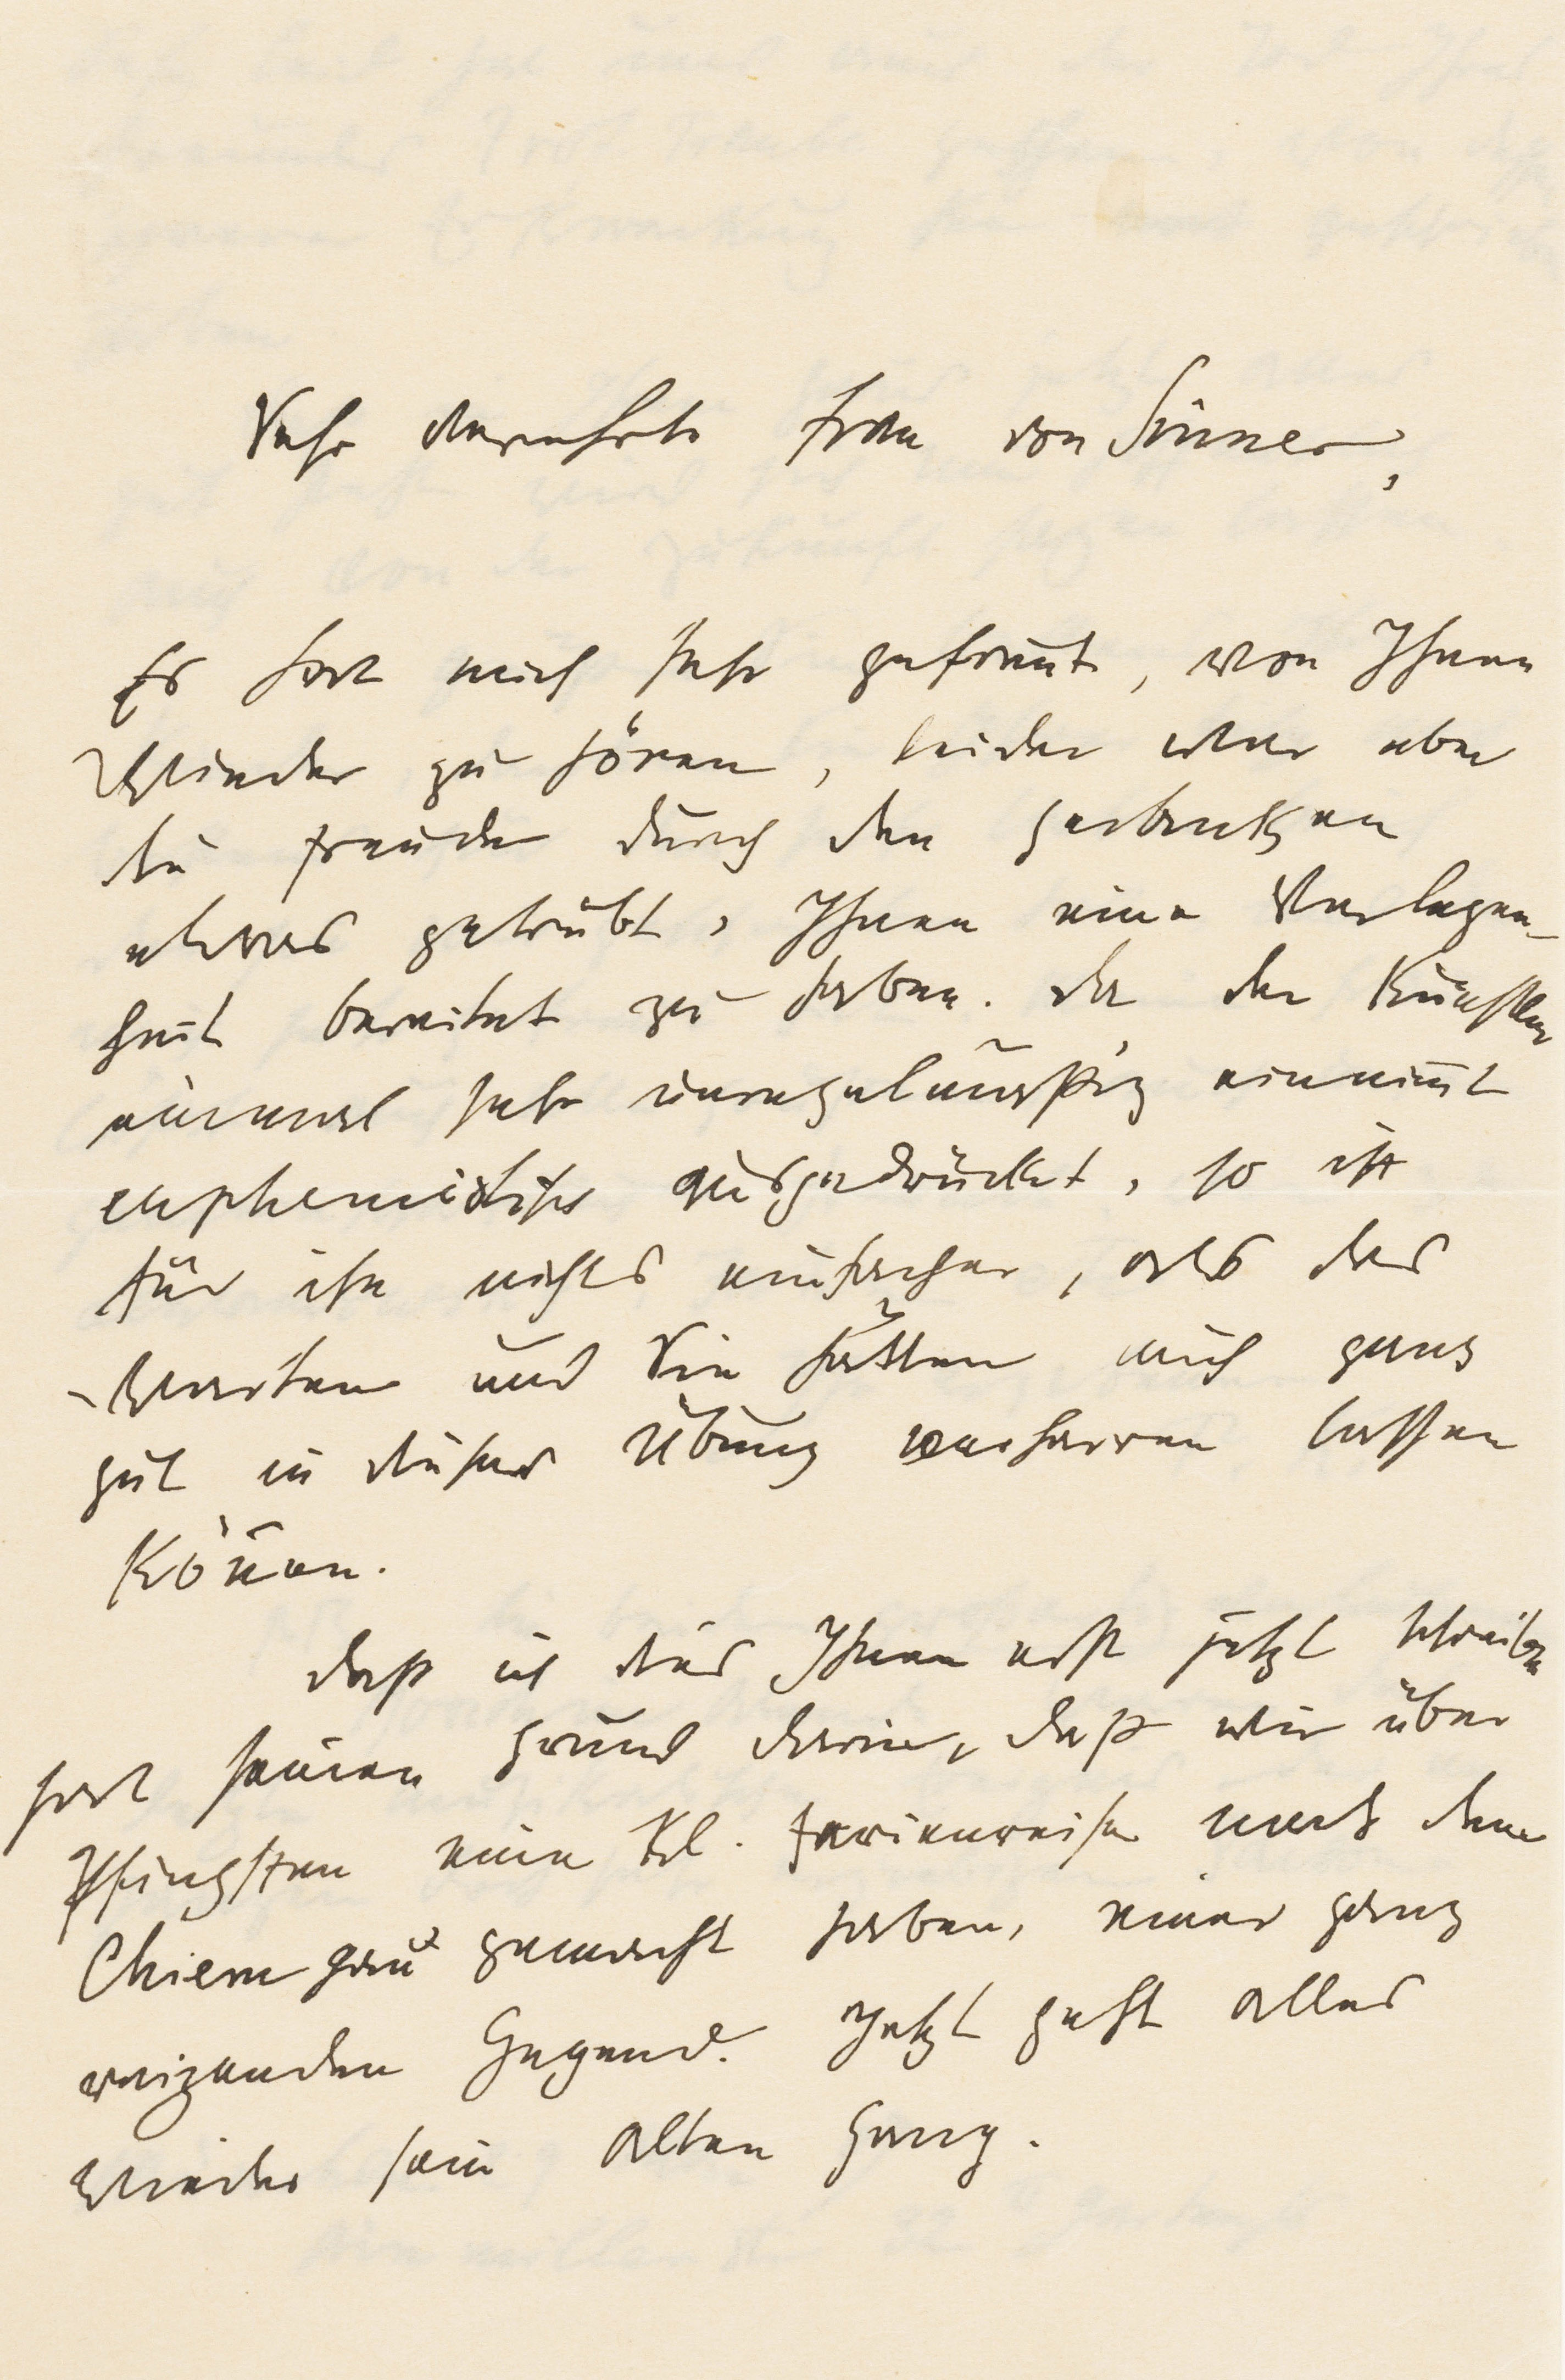 Sehr verehrte Frau von Sinner,
Es hat mich sehr gefreut, von Ihnen
wieder zu hören, leider war aber
die Freude durch den Gedanken
etwas getrübt, Ihnen eine Verlegen-
heit bereitet zu haben. Da der Künstler
einmal sehr unregelmäßig einnim̅t
euphemistisch ausgedrückt, so ist
für ihn nichts einfacher, als das
Warten und Sie hätten mich ganz
gut in dieser Übung verharren lassen
kön̅en.
Daß ich dies Ihnen erst jetzt schreibe
hat seinen Grund darin, daß wir über
Pfingsten eine kl. Ferienreise nach dem
Chiemgau gemacht haben, einer ganz
reizenden Gegend. Jetzt geht alles
wieder sein alten Gang.